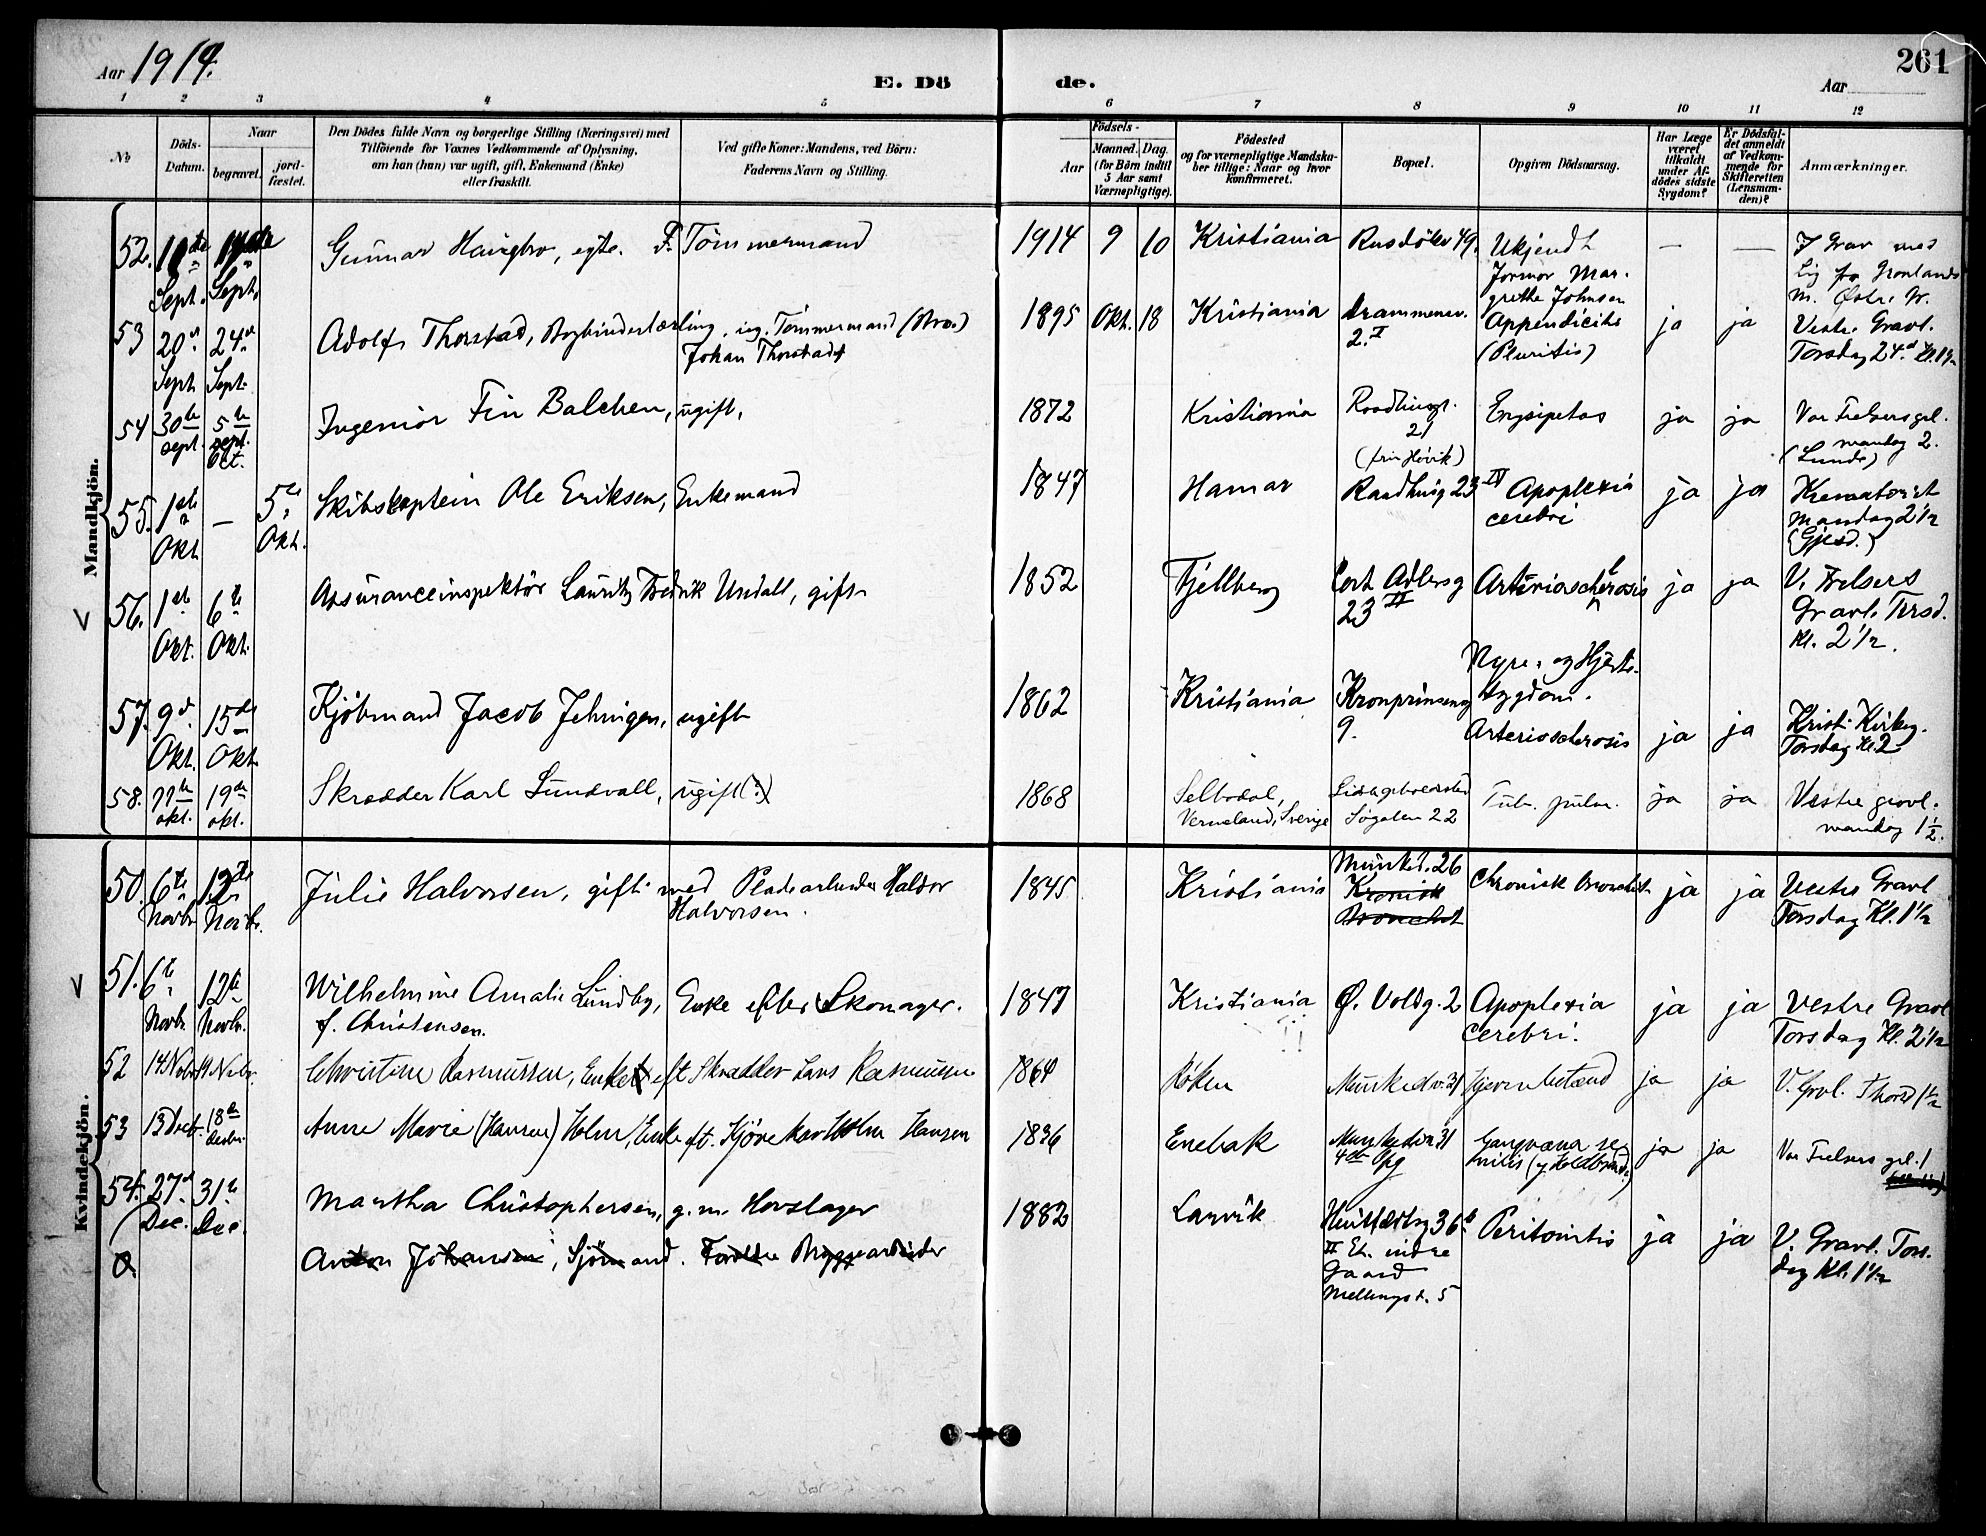 Aar 1914.
E. Dö de.
Aar
261
1 2 3 4 5 6 7 8 9 10 11 12
No
Döds-Datum.
Naar
begravet.
jord-fæstet.
Den Dödes fulde Navn og borgerlige Stilling (Næringsvei) med
Tilföiende for Voxnes Vedkommende af Oplysning,
om han (hun) var ugift, gift, Enkemand (Enke)
eller fraskilt.
Ved gifte Koner: Mandens, ved Börn:
Faderens Navn og Stilling.
Födsels-
Aar
Maaned. Dag.
(for Börn indtil
5 Aar samt
Værnepligtige).
Födested
og for værnepligtige Mandska-
ber tillige: Naar og hvor
konfirmeret.
Bopæl.
Opgiven Dödsaarsag.
Har Læge
været
tilkaldt
under Af-
dödes sidste
Sygdom?
Er Dödsfal-
det anmeldt
af Vedkom-
mende for
Skifteretten
(Lensman-
den)?
Anmærkninger.
Mandkjön.
52. Sept. Sept. Gunnar Haugbro, egte. F. Tömmermand 1914 9 10 Kristiania Rusdökv 49. Ukjendt — — I Grav med
Lig fra Grønlands
M. Østre Gr.
Formor Mar-
grethe Johnsen
53 20de Sept. 24de Sept. Adolf Thorstad, Bogbinderlærling, ug. Tömmermand
Johan Thorstad 1895 Okt. 18 Kristiania Drammensv.
2.I Appendicitis
(Pluritis) ja ja Vestre Gravl.
Torsdag 24.d
54 30te sept. 5te sept. Oct. Ingeniör Fin Balchen, ugift, 1872 Kristiania 21
(fru Hövik) Erysipelas ja ja Vor Frelsers grl.
mandag 2.
(Lunde)
55. 1ste Okt. — 5te Okt. Skibskaptein Ole Eriksen, Enkemand 1847 Hamar Raadhusg 23 IV Apoplexia
cerebri ja ja Krematoriet
Mandag 2 1/2
(Gjesd.)
56. 1ste Okt. 6te Okt. Assuranceinspektör Lauritz Fredrik Undall, gift 1852 Fjellberg Cort Adlersg
23 II Arteriosclerosis ja ja V. Frelsers
Gravl. Tirsd.
Kl. 2 1/2.
57. 9de Okt. 15de Okt. Kjöbmand Jacob Jehnigen, ugift 1862 Kristiania Kronprinseng
9. Nyre- og Hjerte-
sygdom.
Arteriosclerosis ja ja Krist. Kirkeg.
Torsdag Kl. 2
58. okt. 19de okt. Skrædder Karl Lundvall, ugift (?) 1868 Selbodal,
Vermeland, Sverige
Søgaten 22 Tub. pulm. ja ja Vestre gravl.
mandag 1 1/2.
Kvindekjön.
50. 6te Novbr. 12te Novbr. Julie Halvorsen, gift med Pladsarbeider Haldor
Halvorsen. 1845 Kristiania Munked. 26
Kronisk
Bronchit Chronisk Bronchit ja ja Vestre Gravl
Torsdag Kl. 1 1/2
51. 6te Novbr. 12te Novbr. Wilhelmine Amalie Lundby, Enke efter Skomager.
f. Christensen. 1847 Kristiania Ø. Voldg. 2 Apoplexia
cerebri. ja ja Vestre Gravl
Torsdag Kl. 2 1/2
52 14 Nobr 19 Nobr. Christine Rasmussen, Enke eft Skrædder Lars Rasmussen 1864 Röken Munkedv. 31 hjernebetænd ja ja V. Gravl. Thorsd 1 1/2
53 13 Decbr. 18de Anne Marie (Hansen) Holm, Enke eft. Kjørekar Holm Hansen 1836 Enebak Munkedv 31
4de Opg Gangræna se-
nilis (y Koldbrand.) ja ja Vor Frelsers grl. 1
54. 27de Dec. 31te Dec. Martha Christophersen, g. m. Hovslager 1882 Larvik Huitfeldtsg 36b
II Et. indre
Gaard
Mellemgt. 5 Peritonitis ja ja V. Gravl. Tors-
dag Kl. 1 1/2
Anton Johansen, Sjömand. Bryggearbeider